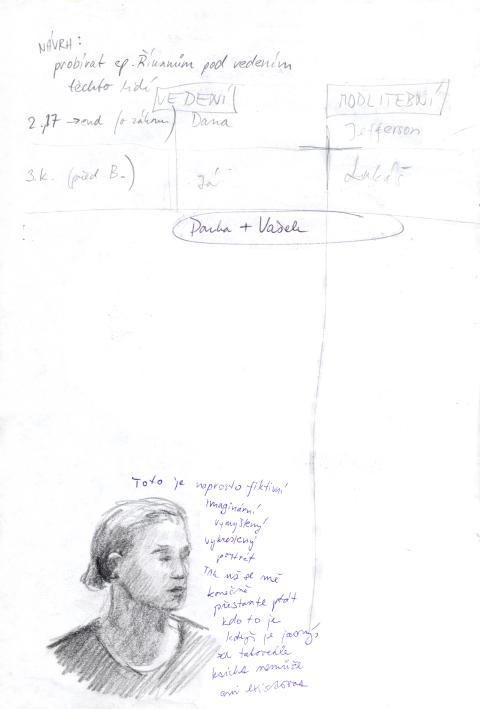 NÁVRH:
probírat ep. Římanům pod vedením
těchto lidí
VEDENÍ MODLITEBNÍ
2.,17 → end (o zákonu) Dana Jefferson
3.k. (před B.) Já Lukáš
Dacha + Vašek
Toto je naprosto fiktivní
imaginární
vymyšlený
vykreslený
portrét
Tak už se mě
konečně
přestaňte ptát
kdo to je
když je jasný,
že takováhle
kočka nemůže
ani existovat